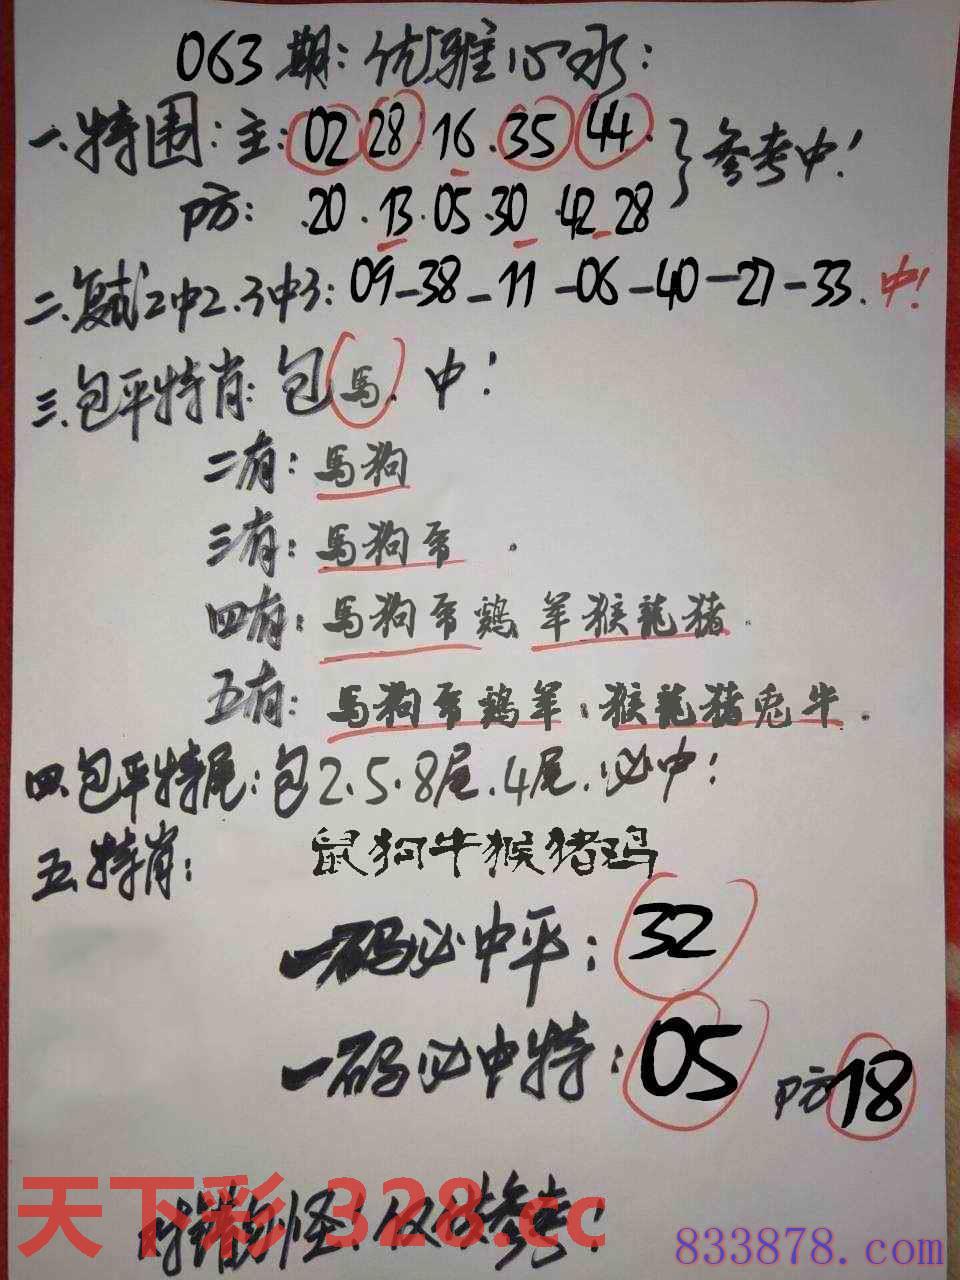 063期：优雅心水：
一.特围：主：02 28 16.35 44.}参考中！
防：.20.13.05.30 42 28
二.复式2中2.3中3：09-38-11-06-40-27-33.中！
三.包平特肖：包馬.中！
二有：馬狗
三有：馬狗.
四有：馬狗鷄羊猴龍猪.
五有：馬狗鷄羊：猴龍猪兎牛.
四.包平特尾：包2.5.8尾.4尾.必中！
五.特肖：鼠狗牛猴猪鸡
一码必中平：32
一码必中特：05 防18
天下彩 328.cc
对错勿怪！仅供参考！
833878.com